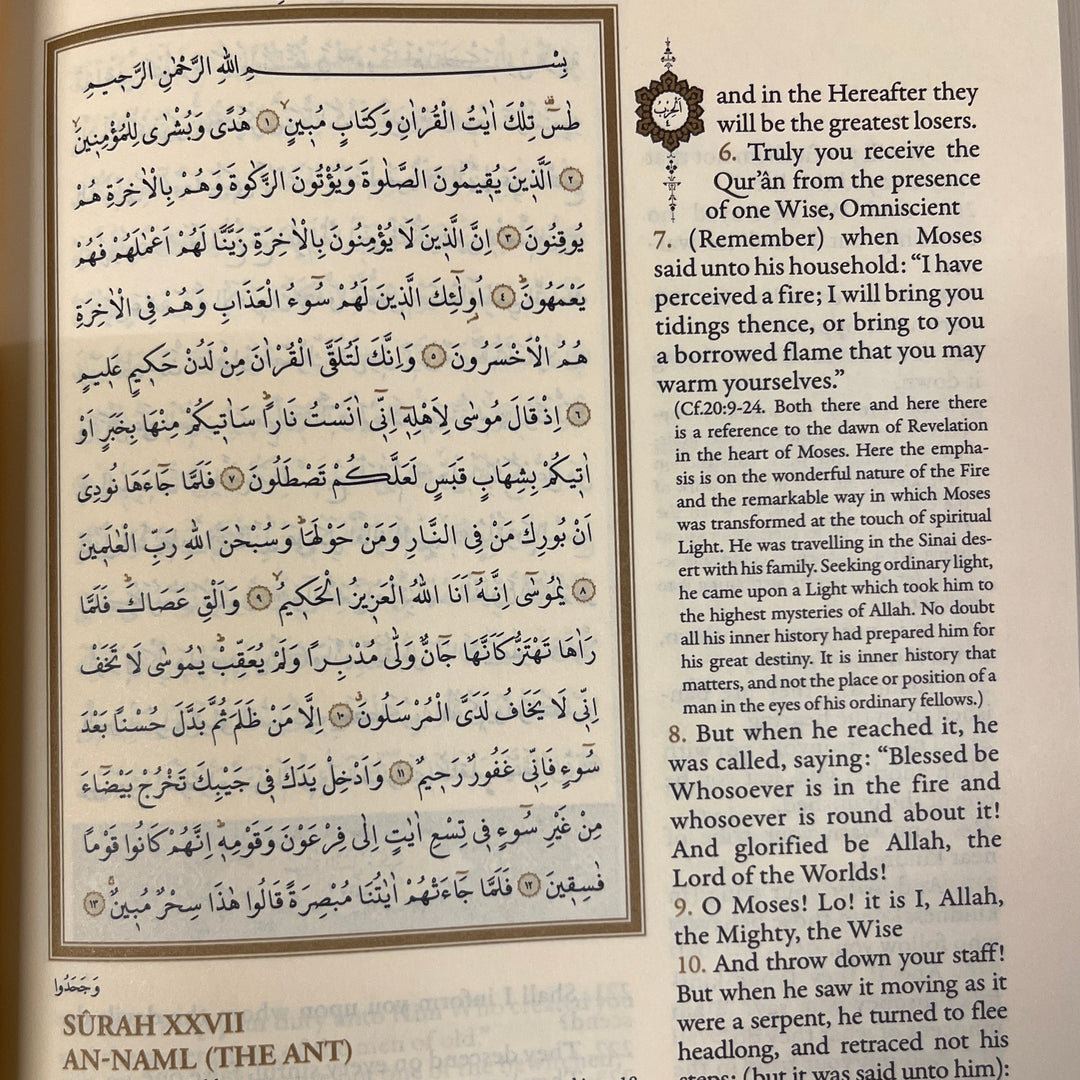 بِسْمِ اللهِ الرَّحْمٰنِ الرَّحٖيمِ
طٰسٓ تِلْكَ اٰيَاتُ الْقُرْاٰنِ وَكِتَابٍ مُبٖينٍ ۝١ هُدًى وَبُشْرٰى لِلْمُؤْمِنٖينَ
۝٢ اَلَّذٖينَ يُقٖيمُونَ الصَّلٰوةَ وَيُؤْتُونَ الزَّكٰوةَ وَهُمْ بِالْاٰخِرَةِ هُمْ
يُوقِنُونَ ۝٣ اِنَّ الَّذٖينَ لَا يُؤْمِنُونَ بِالْاٰخِرَةِ زَيَّنَّا لَهُمْ اَعْمَالَهُمْ فَهُمْ
يَعْمَهُونَ ۝٤ اُولٰٓئِكَ الَّذٖينَ لَهُمْ سُٓوءُ الْعَذَابِ وَهُمْ فِى الْاٰخِرَةِ
هُمُ الْاَخْسَرُونَ ۝٥ وَاِنَّكَ لَتُلَقَّى الْقُرْاٰنَ مِنْ لَدُنْ حَكٖيمٍ عَلٖيمٍ
۝٦ اِذْ قَالَ مُوسٰى لِاَهْلِهٖٓ اِنّٖٓى اٰنَسْتُ نَارًا سَاٰتٖيكُمْ مِنْهَا بِخَبَرٍ اَوْ
اٰتٖيكُمْ بِشِهَابٍ قَبَسٍ لَعَلَّكُمْ تَصْطَلُونَ ۝٧ فَلَمَّا جَٓاءَهَا نُودِىَ
اَنْ بُورِكَ مَنْ فِى النَّارِ وَمَنْ حَوْلَهَا وَسُبْحٰنَ اللهِ رَبِّ الْعٰلَمٖينَ
۝٨ يٰمُوسٰٓى اِنَّهُٓ اَنَا اللهُ الْعَزٖيزُ الْحَكٖيمُ ۝٩ وَاَلْقِ عَصَاكَ فَلَمَّا
رَاٰهَا تَهْتَزُّ كَاَنَّهَا جَٓانٌّ وَلّٰى مُدْبِرًا وَلَمْ يُعَقِّبْ يٰمُوسٰى لَا تَخَفْ
اِنّٖى لَا يَخَافُ لَدَىَّ الْمُرْسَلُونَ ۝١٠ اِلَّا مَنْ ظَلَمَ ثُمَّ بَدَّلَ حُسْنًا بَعْدَ
سُٓوءٍ فَاِنّٖى غَفُورٌ رَحٖيمٌ ۝١١ وَاَدْخِلْ يَدَكَ فٖى جَيْبِكَ تَخْرُجْ بَيْضَٓاءَ
مِنْ غَيْرِ سُٓوءٍ فٖى تِسْعِ اٰيَاتٍ اِلٰى فِرْعَوْنَ وَقَوْمِهٖ اِنَّهُمْ كَانُوا قَوْمًا
فٰسِقٖينَ ۝١٢ فَلَمَّا جَٓاءَتْهُمْ اٰيَاتُنَا مُبْصِرَةً قَالُوا هٰذَا سِحْرٌ مُبٖينٌ ۝١٣
وَجَحَدُوا
SÛRAH XXVII
AN-NAML (THE ANT)
اَلْحِزْبُ
٤
and in the Hereafter they
will be the greatest losers.
6. Truly you receive the
Qur’ân from the presence
of one Wise, Omniscient
7. (Remember) when Moses
said unto his household: “I have
perceived a fire; I will bring you
tidings thence, or bring to you
a borrowed flame that you may
warm yourselves.”
(Cf.20:9-24. Both there and here there
is a reference to the dawn of Revelation
in the heart of Moses. Here the empha-
sis is on the wonderful nature of the Fire
and the remarkable way in which Moses
was transformed at the touch of spiritual
Light. He was travelling in the Sinai des-
ert with his family. Seeking ordinary light,
he came upon a Light which took him to
the highest mysteries of Allah. No doubt
all his inner history had prepared him for
his great destiny. It is inner history that
matters, and not the place or position of a
man in the eyes of his ordinary fellows.)
8. But when he reached it, he
was called, saying: “Blessed be
Whosoever is in the fire and
whosoever is round about it!
And glorified be Allah, the
Lord of the Worlds!
9. O Moses! Lo! it is I, Allah,
the Mighty, the Wise
10. And throw down your staff!
But when he saw it moving as it
were a serpent, he turned to flee
headlong, and retraced not his
steps: (but it was said unto him):